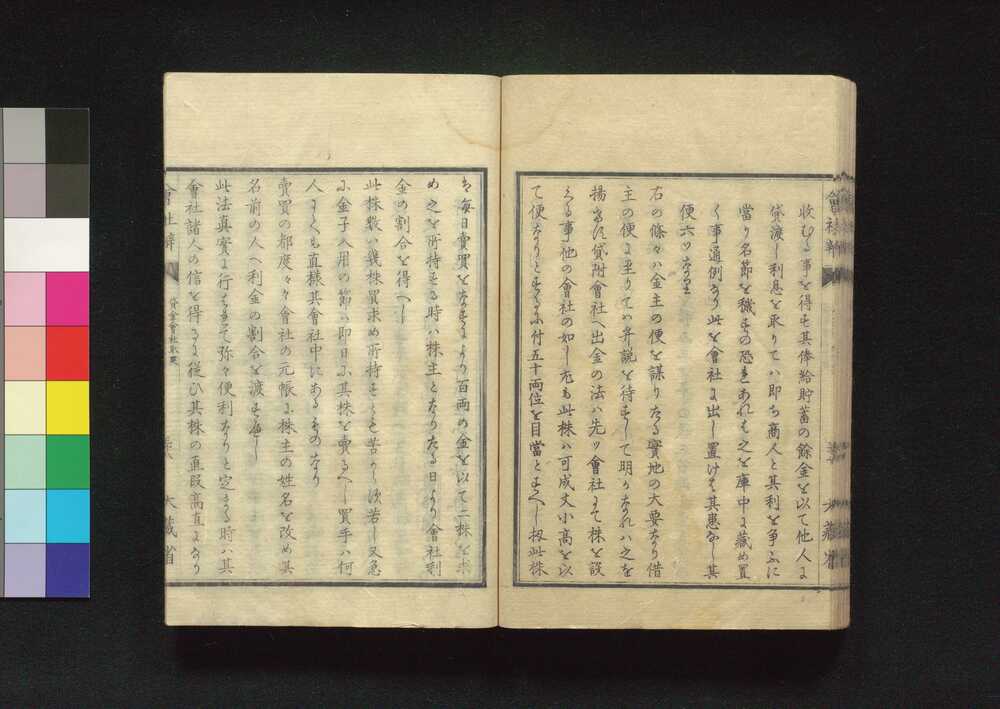 收むる事を得も其俸給貯蓄の餘金を以て他人に
貸渡し利息を取りてハ即ち商人と其利を爭ふに
當り名節を穢すの恐れあれも之を庫中に藏め置
く事通例なり此を會社に出し置けも其患なし其
便六ツなり
右の條々ハ金主の便を謀りたる實地の大要なり借
主の便に至りてハ弁説を待すして明かなれハ之を
揚あれ貸附會社へ出金の法ハ先ツ會社にて株を設
くる事他の會社の如し尤も此株ハ可成丈小高を以
て便なりとするに付五十両位を目當とすへし扨此株
は毎日賣買をなすにより百両の金を以て二株を求
め之を所持する時ハ株主となりたる日より會社利
金の割合を得へし
此株数ハ幾株買求め所持するも苦からす若し又急
に金子入用の節ハ即日に其株を賣るへし買手ハ何
人にても直様其會社中にあるものなり
賣買の都度々々會社の元帳に株主の姓名を改め其
名前の人へ利金の割合を渡すへし
此法真實に行はれて弥々便利なりと定まる時ハ其
會社諸人の信を得るに從ひ其株の直段高直になり
會社辨
貸金會社取建
大藏省
會社辨
大藏省